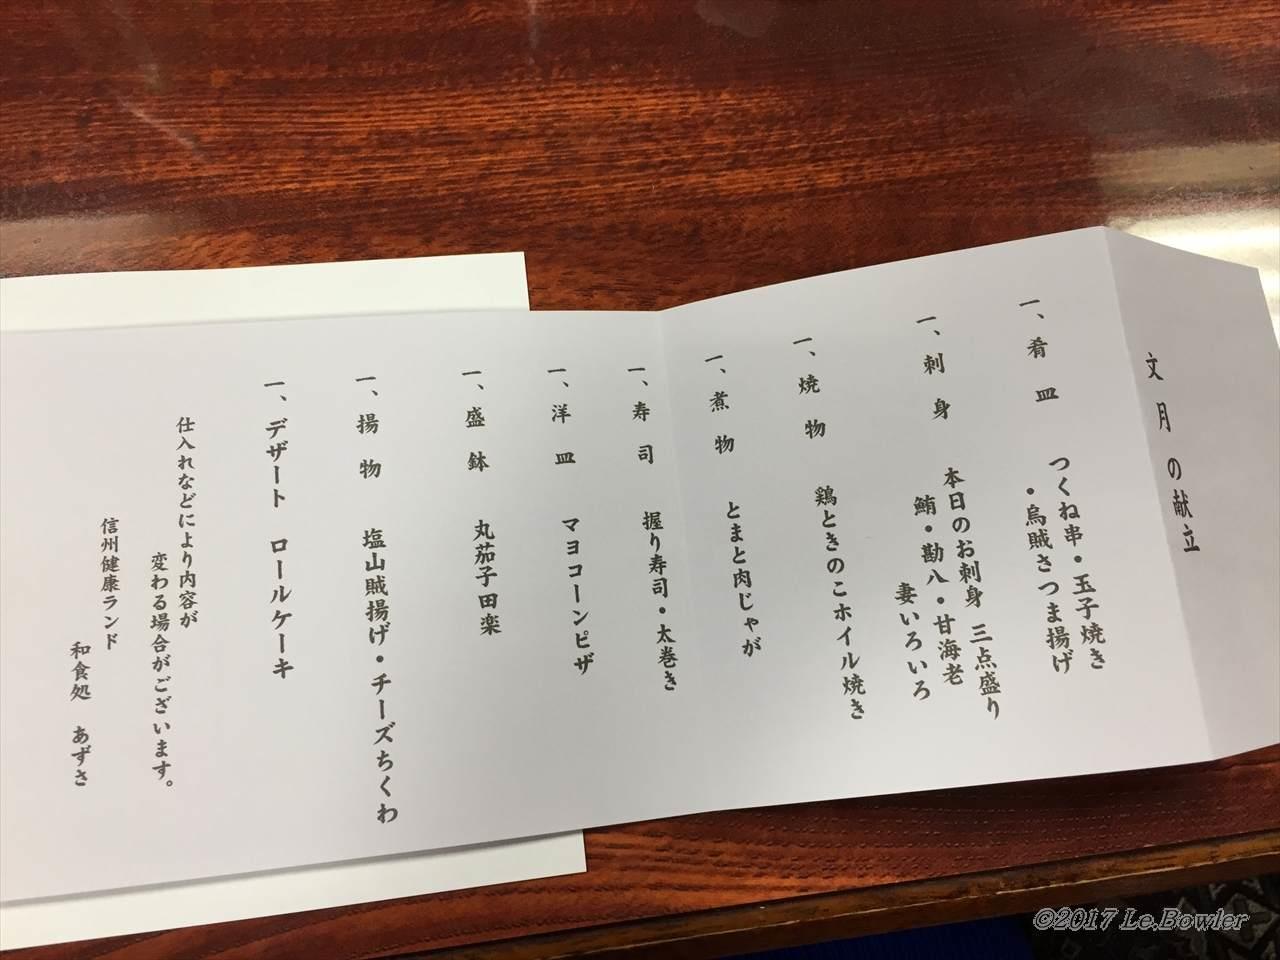 文月の献立
一、肴皿 つくね串・玉子焼き
・烏賊さつま揚げ
一、刺身 本日のお刺身 三点盛り
鮪・勘八・甘海老
妻いろいろ
一、焼物 鶏ときのこホイル焼き
一、煮物 とまと肉じゃが
一、寿司 握り寿司・太巻き
一、洋皿 マヨコーンピザ
一、盛鉢 丸茄子田楽
一、揚物 塩山賊揚げ・チーズちくわ
一、デザート ロールケーキ
仕入れなどにより内容が
変わる場合がございます。
信州健康ランド
和食処 あずさ
©2017 Le.Bowler